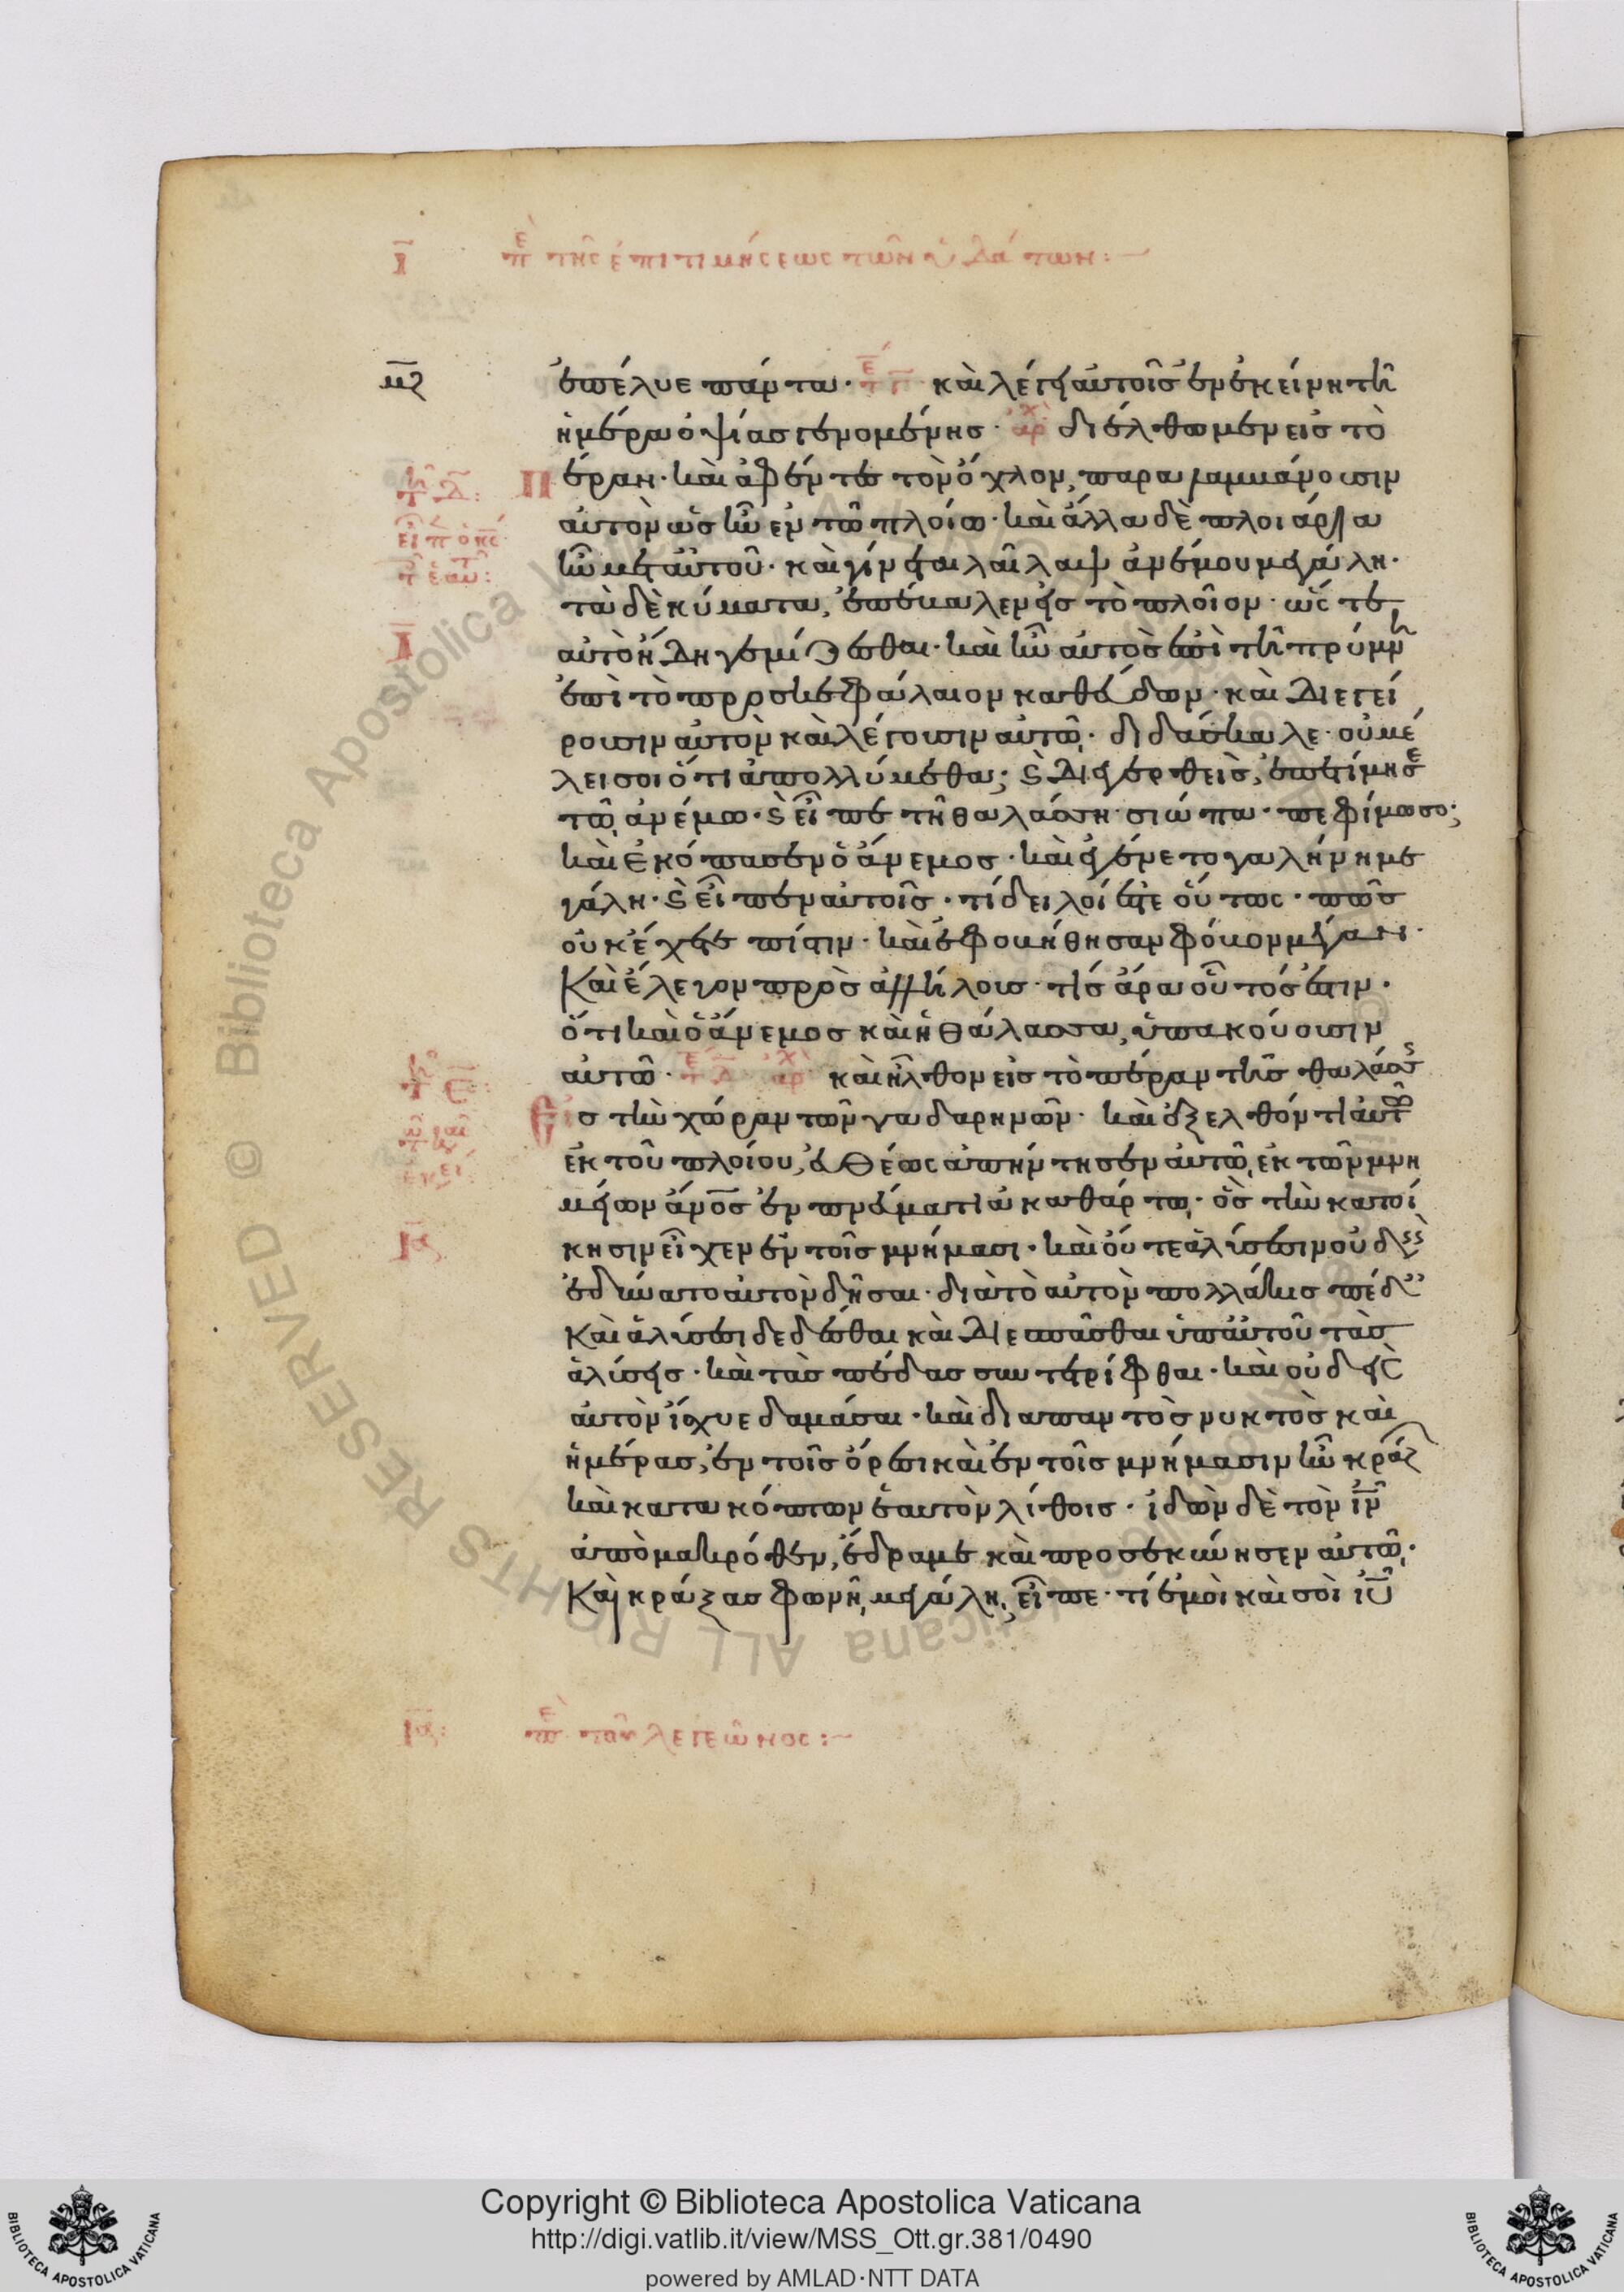 ι πε τῆς ἐπιτιμήσεως τῶν ὑδάτων:
μζ ἐπέλυε πάντα· τέ καὶ λέγει αὐτοῖς ἐν ἐκείνη τῆ
ἡμέρα ὀψίας γενομένης· ἀρχ διέλθωμεν εἰς τὸ
Πέραν· καὶ ἀφέντες τὸν ὄχλον, παραλαμβάνουσιν
αὐτὸν ὡς ἦν ἐν τῶ πλοίω· καὶ ἄλλα δὲ πλοιάρια
ἦν μετ αὐτοῦ· καὶ γίνεται λαῖλαψ ἀνέμου μεγάλη·
τὰ δὲ κύματα, ἐπέβαλεν εἰς τὸ πλοῖον· ὥστε
αὐτὸ ἤδη γεμίζεσθαι· καὶ ἦν αὐτὸς ἐπὶ τῆ πρύμνη
ἐπὶ τὸ προσκεφάλαιον καθεύδων· καὶ διεγεί
ρουσιν αὐτὸν καὶ λέγουσιν αὐτῶ· διδάσκαλε· οὐ μέ
λει σοι ὅτι ἀπολλύμεθα; καὶ διεγερθεὶς, ἐπετίμησε
τῶ ἀνέμω· καὶ εἶπε τῆ θαλάσση· σιώπα· πεφίμωσο;
καὶ ἐκόπασεν ὁ ἄνεμος· καὶ ἐγένετο γαλήνη με
γάλη· καὶ εἶπεν αὐτοῖς· τί δειλοί ἐστε οὕτως· πῶς
οὐκ ἔχετε πίστιν· καὶ ἐφοβήθησαν φόβον μέγαν·
Καὶ ἔλεγον πρὸς ἀλλήλους· τίς ἄρα οὗτός ἐστιν·
ὅτι καὶ ὁ ἄνεμος καὶ ἡ θάλασσα, ὑπακούουσιν
αὐτῶ· τέλ ἀρχ καὶ ἦλθον εἰς τὸ πέραν τῆς θαλάσσης
Εἰς τὴν χώραν τῶν γαδαρηνῶν· καὶ ἐξελθόντι αὐτῶ
ἐκ τοῦ πλοίου, εὐθέως ἀπήντησεν αὐτῶ, ἐκ τῶν μνη
μείων ἄνος ἐν πνεύματι ἀκαθάρτω· ὃς τὴν κατοί
κησιν εἶχεν ἐν τοῖς μνήμασι· καὶ οὔτε ἁλύσεσιν οὐδεὶς
ἐδύνατο αὐτὸν δῆσαι· διὰ τὸ αὐτὸν πολλάκις πέδαις
Καὶ ἁλύσεσι δεδέσθαι καὶ διεσπᾶσθαι ὑπ αὐτοῦ τὰς
ἁλύσεις· καὶ τὰς πέδας συντετρίφθαι· καὶ οὐδεὶς
αὐτὸν ἴσχυε δαμάσαι· καὶ διαπαντὸς νυκτὸς καὶ
ἡμέρας, ἐν τοῖς ὄρεσι καὶ ἐν τοῖς μνήμασιν ἦν κράζων
καὶ κατακόπτων ἑαυτὸν λίθοις· ἰδὼν δὲ τὸν ιν
ἀπὸ μακρόθεν, ἔδραμε καὶ προσεκύνησεν αὐτῶ·
Καὶ κράξας φωνῆ μεγάλη, εἶπε· τί ἐμοὶ καὶ σοὶ ιυ
ια: πε τοῦ λεγεῶνος:
© Biblioteca Apostolica Vaticana ALL RIGHTS RESERVED
Copyright © Biblioteca Apostolica Vaticana
http://digi.vatlib.it/view/MSS_Ott.gr.381/0490
powered by AMLAD·NTT DATA
BIBLIOTECA APOSTOLICA VATICANA
BIBLIOTECA APOSTOLICA VATICANA